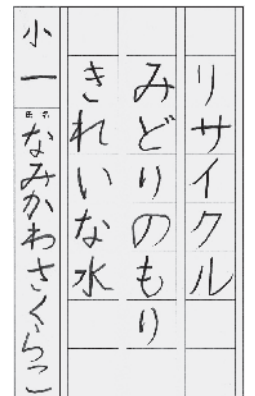 リサイクル
みどりのもり
きれいな水
小一
氏名
なみかわさくらこ